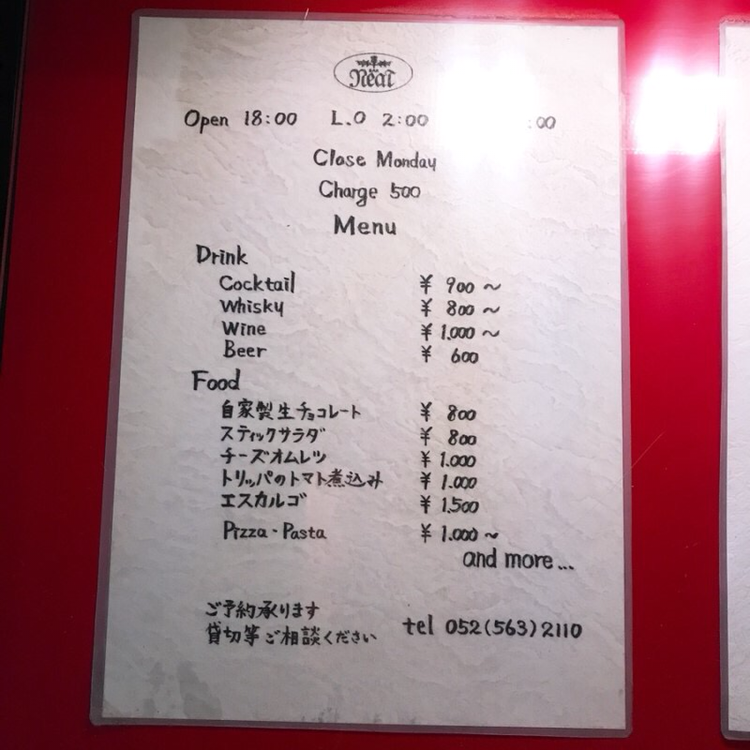 Neat
Open 18:00 L.O 2:00 :00
Close Monday
Charge 500
Menu
Drink
Cocktail ¥ 900 ~
Whisky ¥ 800 ~
Wine ¥ 1.000 ~
Beer ¥ 600
Food
自家製生チョコレート ¥ 800
スティックサラダ ¥ 800
チーズオムレツ ¥ 1.000
トリッパのトマト煮込み ¥ 1.000
エスカルゴ ¥ 1,500
Pizza・Pasta ¥ 1.000 ~
and more...
ご予約承ります
貸切等ご相談ください tel 052(563)2110